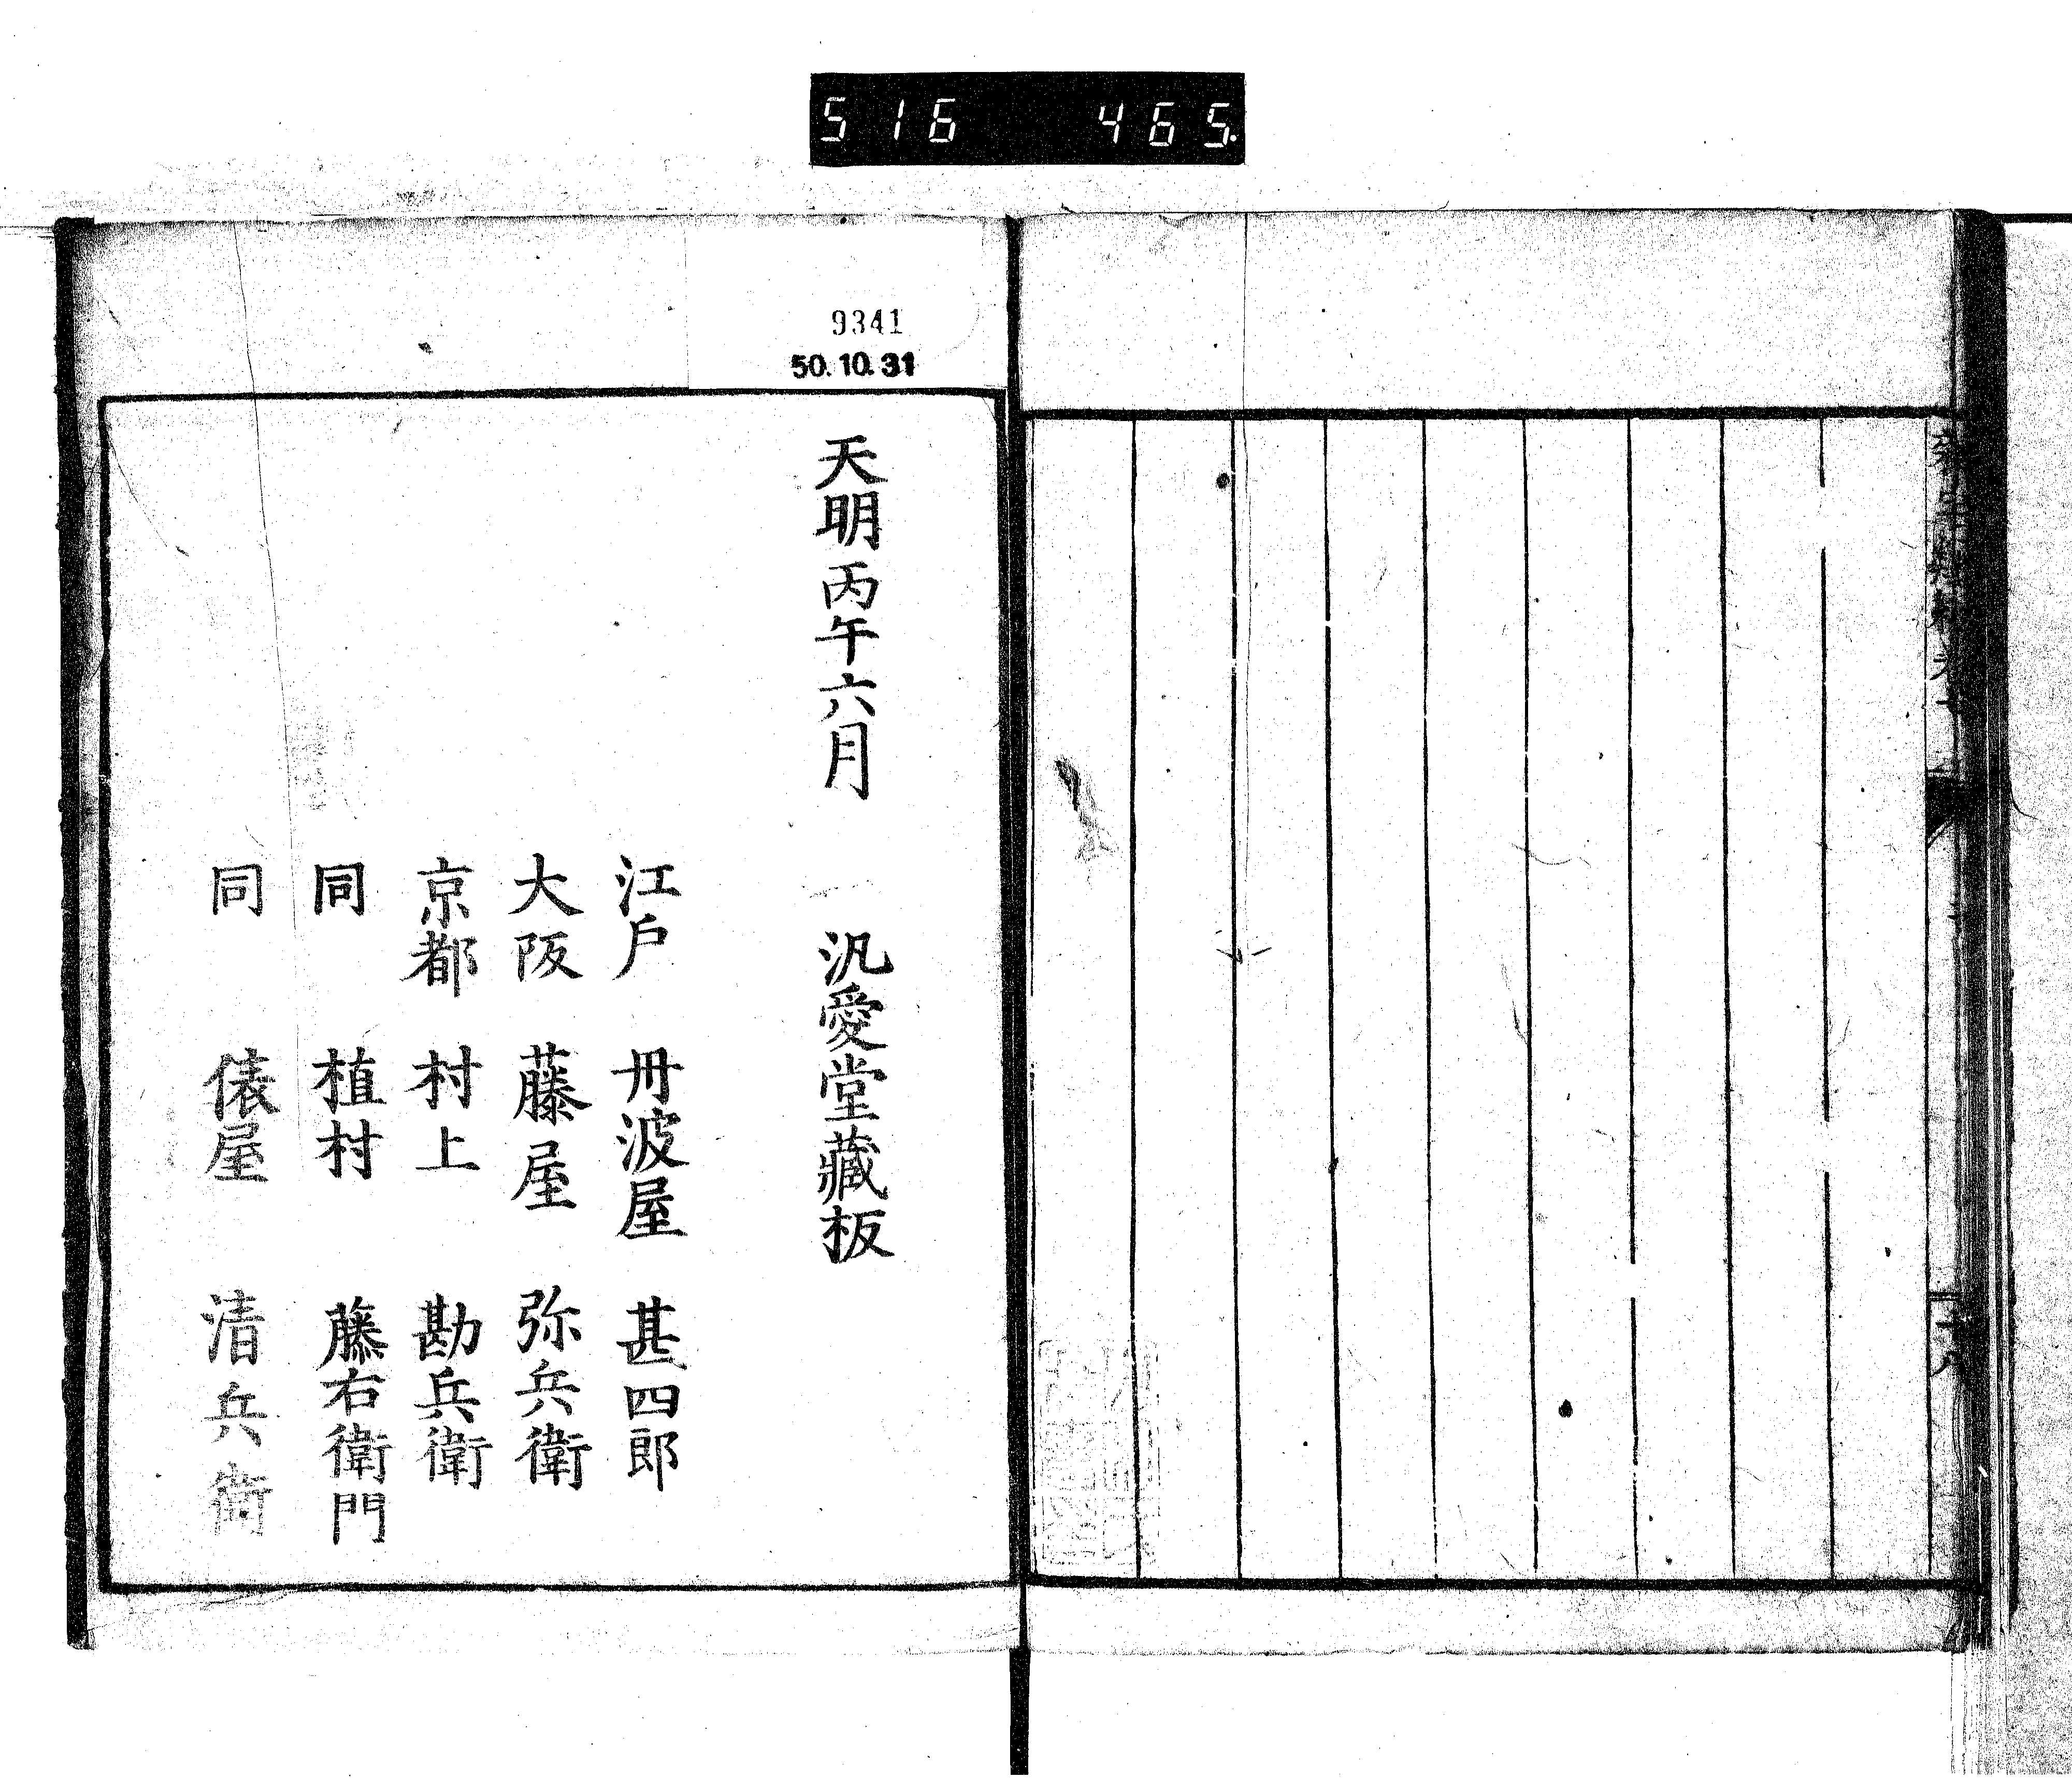 516 465.
十八
9341
50.10.31
天明丙午六月 汎愛堂藏板
江戸 丹波屋 甚四郎
大阪 藤屋 弥兵衛
京都 村上 勘兵衛
同 植村 藤右衛門
同 俵屋 清兵衛